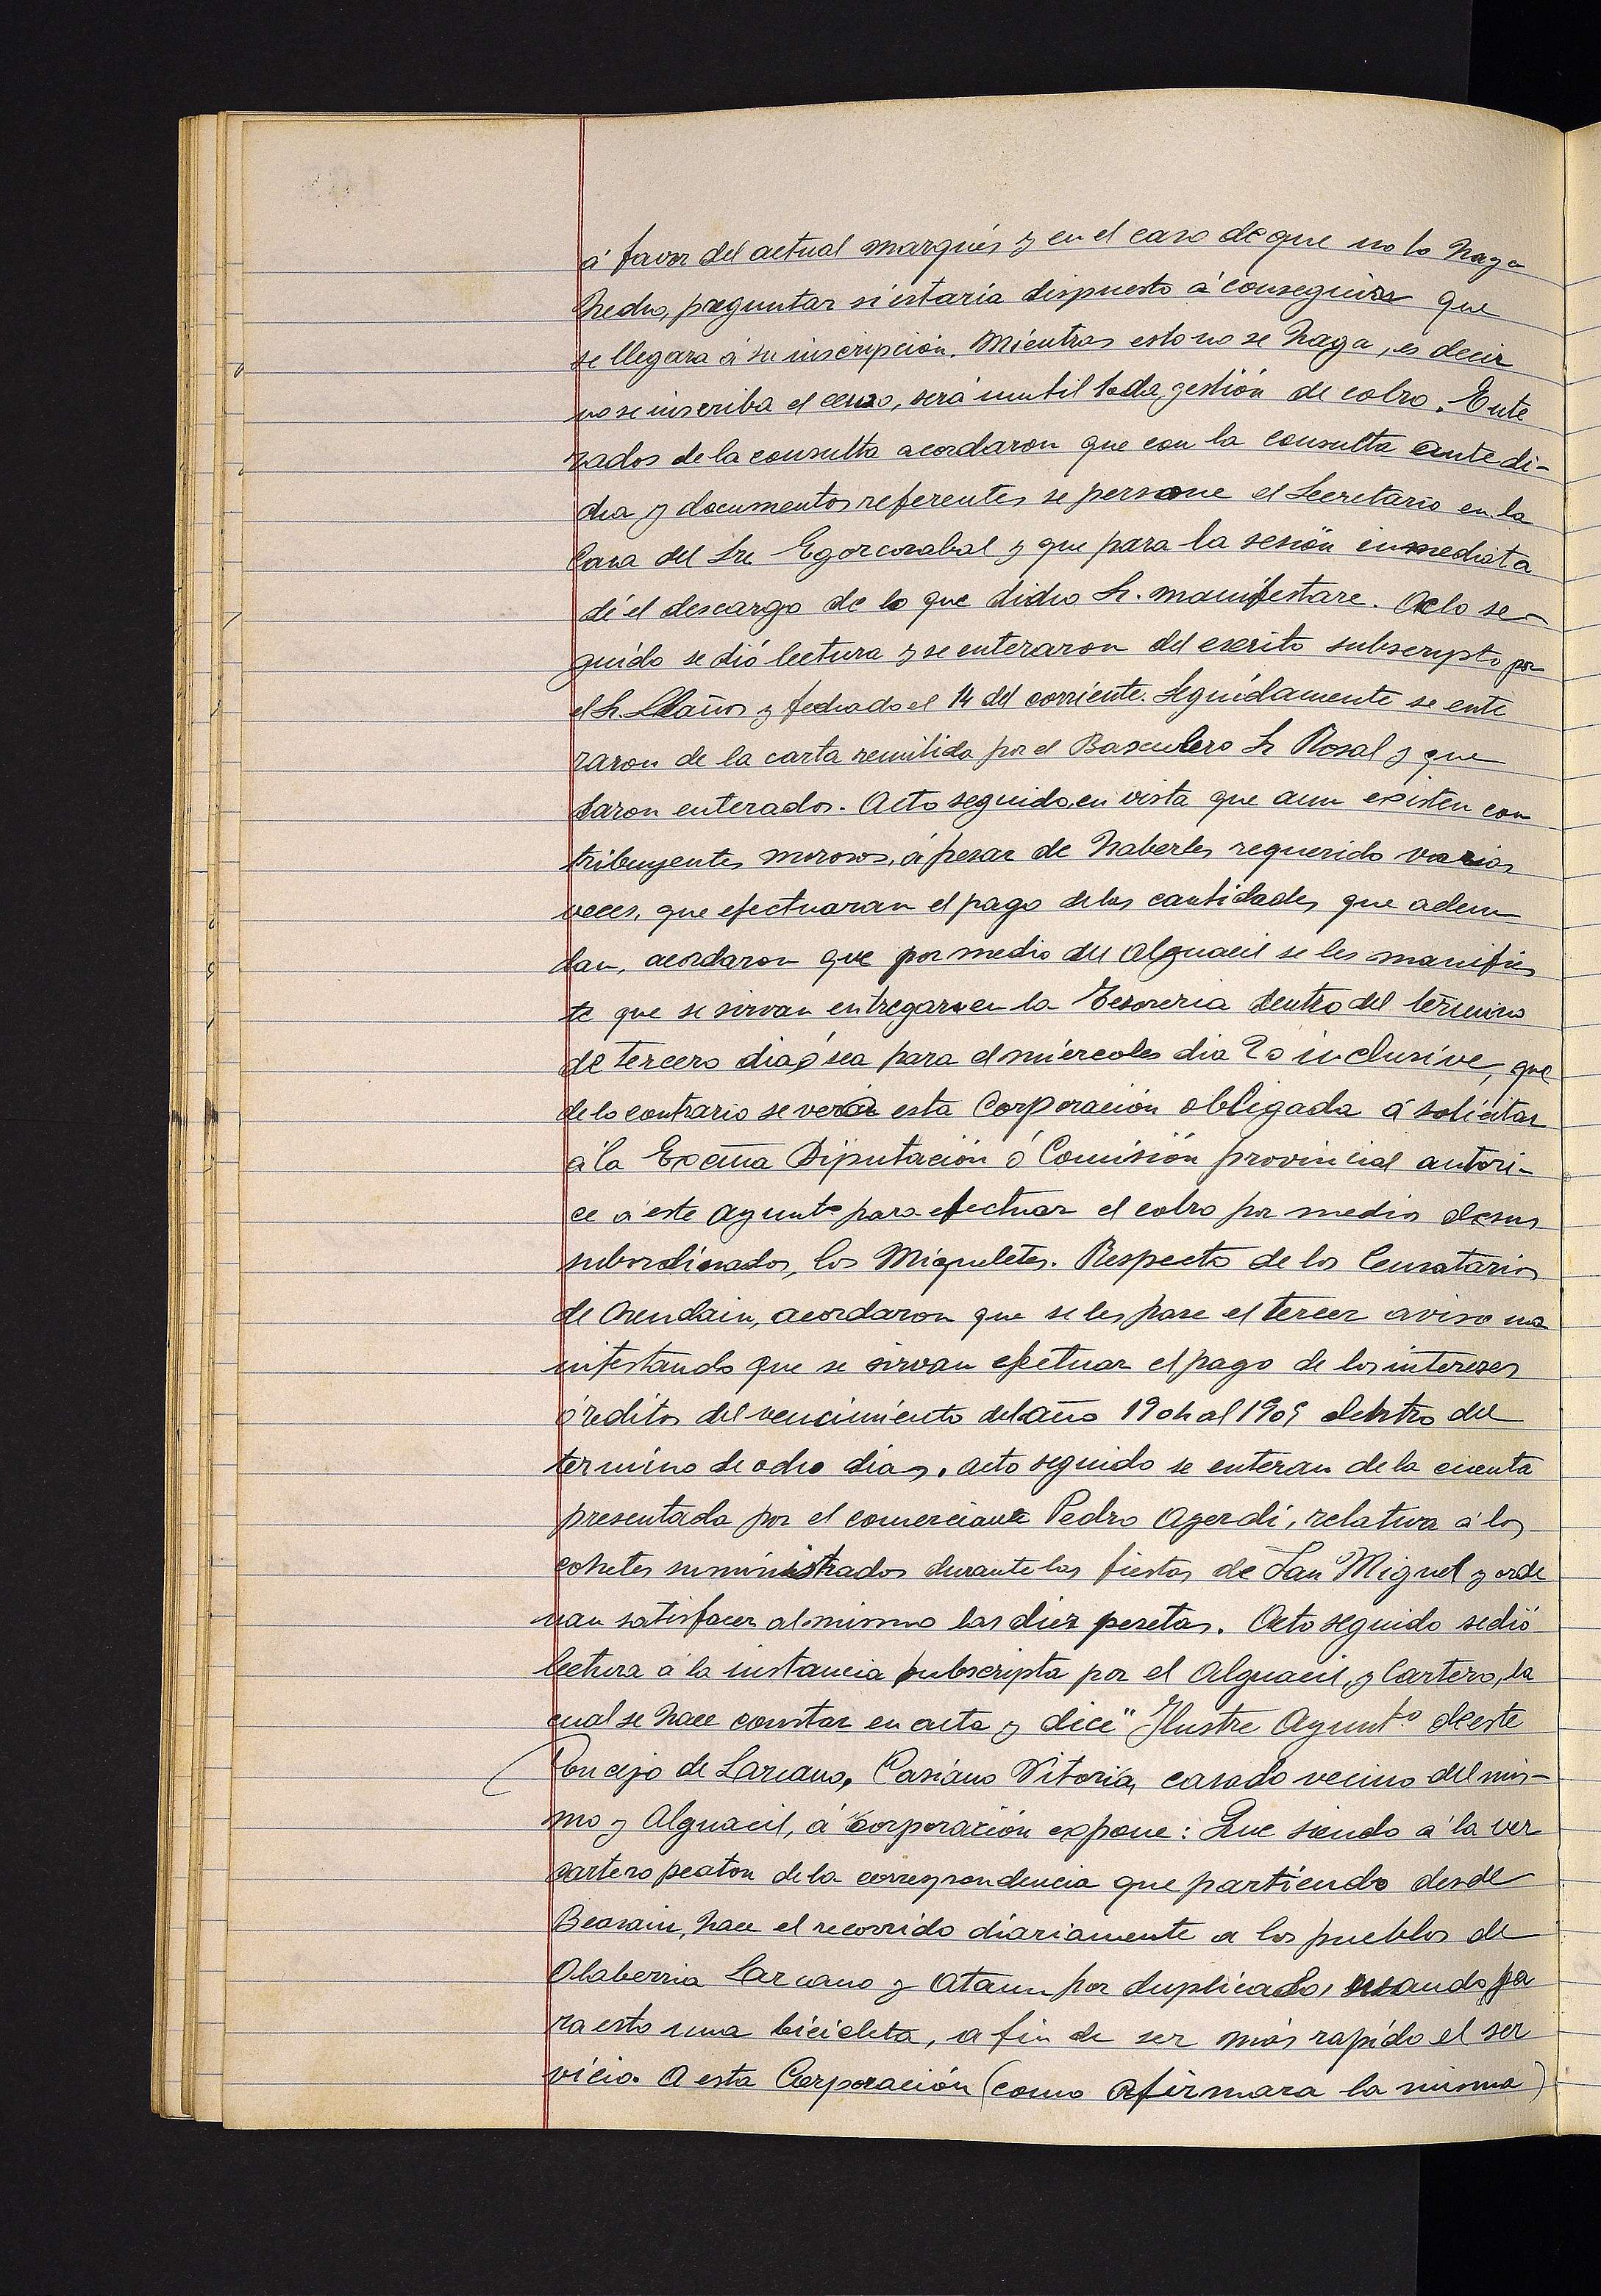 á favor del actual marqués y en el caso de que no lo haya
hecho, preguntar si estaria dispuesto á conseguir que
se llegara á su inscripción. Mientras esto no se haga, es decir
no se inscriba el censo, será inutil toda gestión de cobro. Ente
rados de la consulta acordaron que con la consulta antedi-
cha y documentos referentes se persone el Secretario en la
Casa del Sr. Egorcozabal y que para la sesión inmediata
dé el descargo de lo que dicho Sr. manifestare. Acto se-
guido se dió lectura y se enteraron del escrito subscripto por
el Sr. Llaños y fechado el 14 del corriente. Seguidamente se ente
raron de la carta remitida por el Basculero Sr Rosal y que
daron enterados. Acto seguido, en vista que aun existen con
tribuyentes morosos, á pesar de haberles requerido varias
veces, que efectuaran el pago de las cantidades que adeu
dan, acordaron que por medio del Alguacil se les manifies
te que se sirvan entregar en la Tesoreria dentro del término
de tercero dia ó sea para el miércoles dia 20 inclusive, que
de lo contrario se verá esta Corporación obligada á solicitar
á la Excma Diputación ó Comisión provincial autori-
ce á este Ayunto para efectuar el cobro por medio de sus
subordinados, los Miqueletes. Respecto de los Censatarios
de Orendain, acordaron que se les pase el tercer aviso ma
nifestando que se sirvan efectuar el pago de los intereses
ó reditos del vencimiento del año 1904 al 1905 dentro del
termino de ocho dias. Acto seguido se enteran de la cuenta
presentada por el comerciante Pedro Agerdi, relativa á los
cohetes suministrados durante las fiestas de San Miguel y orde
nan satisfacer al mismo las diez pesetas. Acto seguido se dió
lectura á la instancia subscripta por el Alguacil, y Cartero, la
cual se hace constar en acta y dice "Ilustre Ayunto de este
Concejo de Lazcano, Casiano Vitoria, casado vecino del mis-
mo y Alguacil, á Corporación expone: Que siendo á la vez
cartero peaton de la correspondencia que partiendo desde
Beasain, hace el recorrido diariamente a los pueblos de
Olaberria Lazcano y Ataun por duplicado, usando pa
ra esto una bicicleta, a fin de ser más rapido el ser
vicio. A esta Corporación (como afirmara la misma)